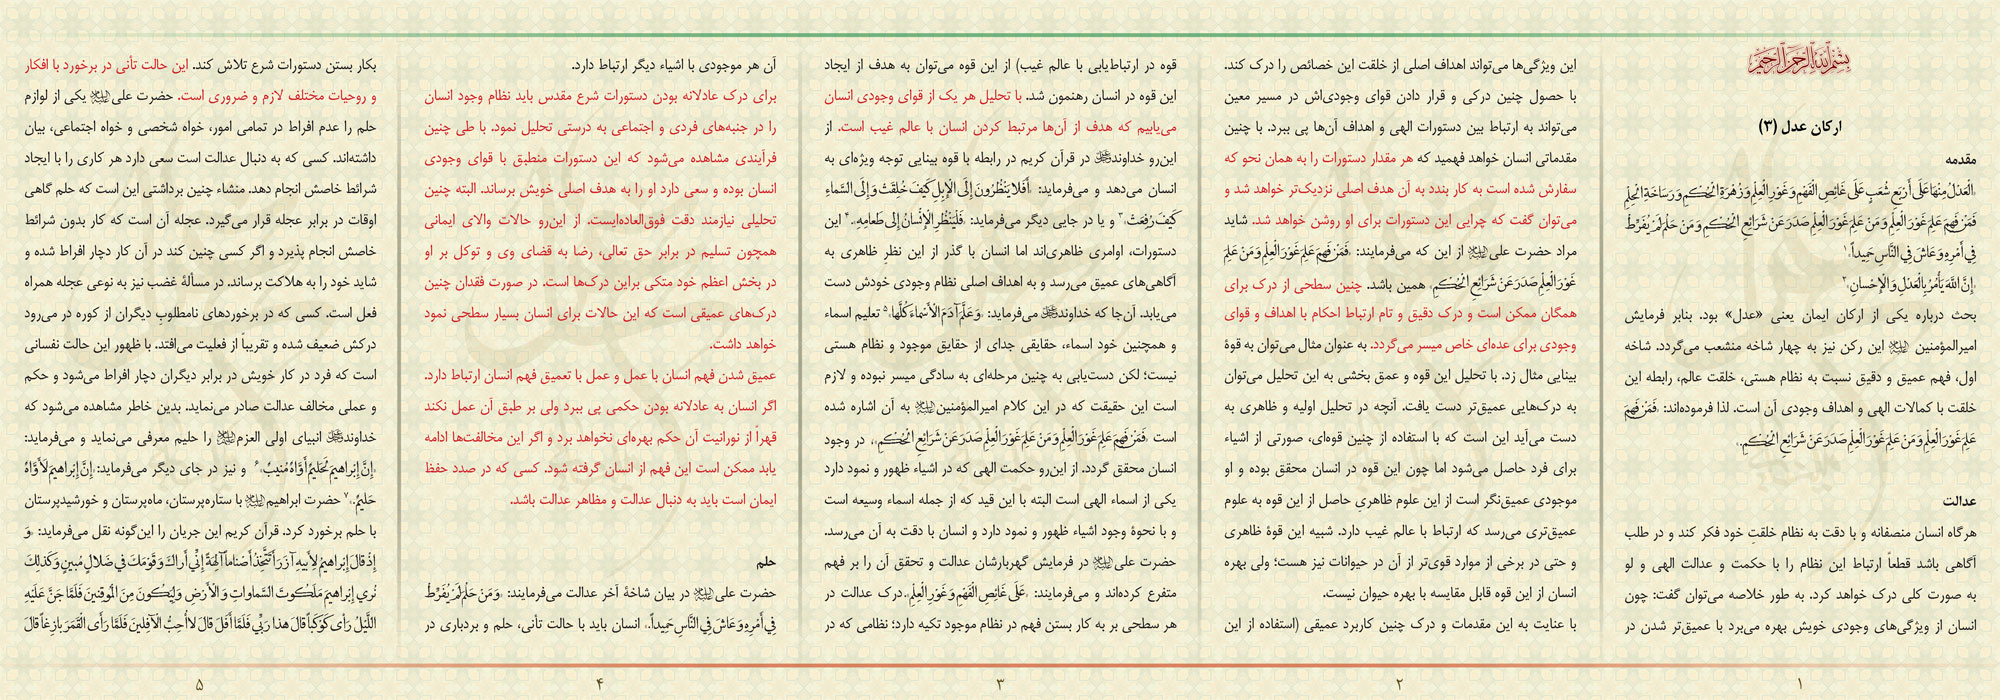 بِسْمِ اللَّهِ الرَّحْمَنِ الرَّحِيمِ
ارکان عدل (۳)
مقدمه
«الْعَدْلُ مِنْهَا عَلَى أَرْبَعِ شُعَبٍ عَلَى غَائِصِ الْفَهْمِ وَ غَوْرِ الْعِلْمِ وَ زُهْرَةِ الْحُكْمِ وَ رَسَاخَةِ الْحِلْمِ
فَمَنْ فَهِمَ عَلِمَ غَوْرَ الْعِلْمِ وَ مَنْ عَلِمَ غَوْرَ الْعِلْمِ صَدَرَ عَنْ شَرَائِعِ الْحُكْمِ وَ مَنْ حَلُمَ لَمْ يُفَرِّطْ
فِي أَمْرِهِ وَ عَاشَ فِي النَّاسِ حَمِيداً»۱
«إِنَّ اللَّهَ يَأْمُرُ بِالْعَدْلِ وَ الْإِحْسانِ»۲
بحث درباره یکی از ارکان ایمان یعنی «عدل» بود. بنابر فرمایش
امیرالمؤمنین علیه‌السلام این رکن نیز به چهار شاخه منشعب می‌گردد. شاخه
اول، فهم عمیق و دقیق نسبت به نظام هستی، خلقت عالم، رابطه این
خلقت با کمالات الهی و اهداف وجودی آن است. لذا فرموده‌اند: «فَمَنْ فَهِمَ
عَلِمَ غَوْرَ الْعِلْمِ وَ مَنْ عَلِمَ غَوْرَ الْعِلْمِ صَدَرَ عَنْ شَرَائِعِ الْحُكْمِ».
عدالت
هرگاه انسان منصفانه و با دقت به نظام خلقت خود فکر کند و در طلب
آگاهی باشد قطعاً ارتباط این نظام را با حکمت و عدالت الهی و لو
به صورت کلی درک خواهد کرد. به طور خلاصه می‌توان گفت: چون
انسان از ویژگی‌های وجودی خویش بهره می‌برد با عمیق‌تر شدن در
۱
این ویژگی‌ها می‌تواند اهداف اصلی از خلقت این خصائص را درک کند.
با حصول چنین درکی و قرار دادن قوای وجودی‌اش در مسیر معین
می‌تواند به ارتباط بین دستورات الهی و اهداف آن‌ها پی ببرد. با چنین
مقدماتی انسان خواهد فهمید که هر مقدار دستورات را به همان نحو که
سفارش شده است به کار بندد به آن هدف اصلی نزدیک‌تر خواهد شد و
می‌توان گفت که چرایی این دستورات برای او روشن خواهد شد. شاید
مراد حضرت علی علیه‌السلام از این که می‌فرمایند: «فَمَنْ فَهِمَ عَلِمَ غَوْرَ الْعِلْمِ وَ مَنْ عَلِمَ
غَوْرَ الْعِلْمِ صَدَرَ عَنْ شَرَائِعِ الْحُكْمِ» همین باشد. چنین سطحی از درک برای
همگان ممکن است و درک دقیق و تام ارتباط احکام با اهداف و قوای
وجودی برای عده‌ای خاص میسر می‌گردد. به عنوان مثال می‌توان به قوهٔ
بینایی مثال زد. با تحلیل این قوه و عمق بخشی به این تحلیل می‌توان
به درک‌هایی عمیق‌تر دست یافت. آنچه در تحلیل اولیه و ظاهری به
دست می‌آید این است که با استفاده از چنین قوه‌ای، صورتی از اشیاء
برای فرد حاصل می‌شود اما چون این قوه در انسان محقق بوده و او
موجودی عمیق‌نگر است از این علوم ظاهریِ حاصل از این قوه به علوم
عمیق‌تری می‌رسد که ارتباط با عالم غیب دارد. شبیه این قوهٔ ظاهری
و حتی در برخی از موارد قوی‌تر از آن در حیوانات نیز هست؛ ولی بهره
انسان از این قوه قابل مقایسه با بهره حیوان نیست.
با عنایت به این مقدمات و درک چنین کاربرد عمیقی (استفاده از این
۲
قوه در ارتباط‌یابی با عالم غیب) از این قوه می‌توان به هدف از ایجاد
این قوه در انسان رهنمون شد. با تحلیل هر یک از قوای وجودی انسان
می‌یابیم که هدف از آن‌ها مرتبط کردن انسان با عالم غیب است. از
این‌رو خداوند در قرآن کریم در رابطه با قوه بینایی توجه ویژه‌ای به
انسان می‌دهد و می‌فرماید: «أَفَلا يَنْظُرُونَ إِلَى الْإِبِلِ كَيْفَ خُلِقَتْ وَ إِلَى السَّماءِ
كَيْفَ رُفِعَتْ»۳ و یا در جایی دیگر می‌فرماید: «فَلْيَنْظُرِ الْإِنْسانُ إِلى طَعامِهِ»۴. این
دستورات، اوامری ظاهری‌اند اما انسان با گذر از این نظر ظاهری به
آگاهی‌های عمیق می‌رسد و به اهداف اصلی نظام وجودی خودش دست
می‌یابد. آن‌جا که خداوند می‌فرماید: «وَ عَلَّمَ آدَمَ الْأَسْماءَ كُلَّها»۵ تعلیم اسماء
و همچنین خود اسماء، حقایقی جدای از حقایق موجود و نظام هستی
نیست؛ لکن دست‌یابی به چنین مرحله‌ای به سادگی میسر نبوده و لازم
است این حقیقت که در این کلام امیرالمؤمنین علیه‌السلام به آن اشاره شده
است «فَمَنْ فَهِمَ عَلِمَ غَوْرَ الْعِلْمِ وَ مَنْ عَلِمَ غَوْرَ الْعِلْمِ صَدَرَ عَنْ شَرَائِعِ الْحُكْمِ»، در وجود
انسان محقق گردد. از این‌رو حکمت الهی که در اشیاء ظهور و نمود دارد
یکی از اسماء الهی است البته با این قید که از جمله اسماء وسیعه است
و با نحوهٔ وجود اشیاء ظهور و نمود دارد و انسان با دقت به آن می‌رسد.
حضرت علی علیه‌السلام در فرمایش گهربارشان عدالت و تحقق آن را بر فهم
متفرع کرده‌اند و می‌فرمایند: «عَلَى غَائِصِ الْفَهْمِ وَ غَوْرِ الْعِلْمِ». درک عدالت در
هر سطحی بر به کار بستن فهم در نظام موجود تکیه دارد؛ نظامی که در
۳
آن هر موجودی با اشیاء دیگر ارتباط دارد.
برای درک عادلانه بودن دستورات شرع مقدس باید نظام وجود انسان
را در جنبه‌های فردی و اجتماعی به درستی تحلیل نمود. با طی چنین
فرآیندی مشاهده می‌شود که این دستورات منطبق با قوای وجودی
انسان بوده و سعی دارد او را به هدف اصلی خویش برساند. البته چنین
تحلیلی نیازمند دقت فوق‌العاده‌ایست. از این‌رو حالات والای ایمانی
همچون تسلیم در برابر حق تعالی، رضا به قضای وی و توکل بر او
در بخش اعظم خود متکی براین درک‌ها است. در صورت فقدان چنین
درک‌های عمیقی است که این حالات برای انسان بسیار سطحی نمود
خواهد داشت.
عمیق شدن فهم انسان با عمل و عمل با تعمیق فهم انسان ارتباط دارد.
اگر انسان به عادلانه بودن حکمی پی ببرد ولی بر طبق آن عمل نکند
قهراً از نورانیت آن حکم بهره‌ای نخواهد برد و اگر این مخالفت‌ها ادامه
یابد ممکن است این فهم از انسان گرفته شود. کسی که در صدد حفظ
ایمان است باید به دنبال عدالت و مظاهر عدالت باشد.
حلم
حضرت علی علیه‌السلام در بیان شاخهٔ آخر عدالت می‌فرمایند: «وَ مَنْ حَلُمَ لَمْ يُفَرِّطْ
فِي أَمْرِهِ وَ عَاشَ فِي النَّاسِ حَمِيداً». انسان باید با حالت تأنی، حلم و بردباری در
۴
بکار بستن دستورات شرع تلاش کند. این حالت تأنی در برخورد با افکار
و روحیات مختلف لازم و ضروری است. حضرت علی علیه‌السلام یکی از لوازم
حلم را عدم افراط در تمامی امور، خواه شخصی و خواه اجتماعی، بیان
داشته‌اند. کسی که به دنبال عدالت است سعی دارد هر کاری را با ایجاد
شرائط خاصش انجام دهد. منشاء چنین برداشتی این است که حلم گاهی
اوقات در برابر عجله قرار می‌گیرد. عجله آن است که کار بدون شرائط
خاصش انجام پذیرد و اگر کسی چنین کند در آن کار دچار افراط شده و
شاید خود را به هلاکت برساند. در مسألهٔ غضب نیز به نوعی عجله همراه
فعل است. کسی که در برخوردهای نامطلوبِ دیگران از کوره در می‌رود
درکش ضعیف شده و تقریباً از فعلیت می‌افتد. با ظهور این حالت نفسانی
است که فرد در کار خویش در برابر دیگران دچار افراط می‌شود و حکم
و عملی مخالف عدالت صادر می‌نماید. بدین خاطر مشاهده می‌شود که
خداوند انبیای اولی العزم را حلیم معرفی می‌نماید و می‌فرماید:
«إِنَّ إِبْراهيمَ لَحَليمٌ أَوَّاهٌ مُنيبٌ»۶ و نیز در جای دیگر می‌فرماید: «إِنَّ إِبْراهيمَ لَأَوَّاهٌ
حَليمٌ»۷. حضرت ابراهیم علیه‌السلام با ستاره‌پرستان، ماه‌پرستان و خورشیدپرستان
با حلم برخورد کرد. قرآن کریم این جریان را این‌گونه نقل می‌فرماید: «وَ
إِذْ قالَ إِبْراهيمُ لِأَبيهِ آزَرَ أَ تَتَّخِذُ أَصْناماً آلِهَةً إِنِّي أَراكَ وَ قَوْمَكَ في ضَلالٍ مُبينٍ وَ كَذلِكَ
نُري إِبْراهيمَ مَلَكُوتَ السَّماواتِ وَ الْأَرْضِ وَ لِيَكُونَ مِنَ الْمُوقِنينَ فَلَمَّا جَنَّ عَلَيْهِ
اللَّيْلُ رَأى كَوْكَباً قالَ هذا رَبِّي فَلَمَّا أَفَلَ قالَ لا أُحِبُّ الْآفِلينَ فَلَمَّا رَأَى الْقَمَرَ بازِغاً قالَ
۵